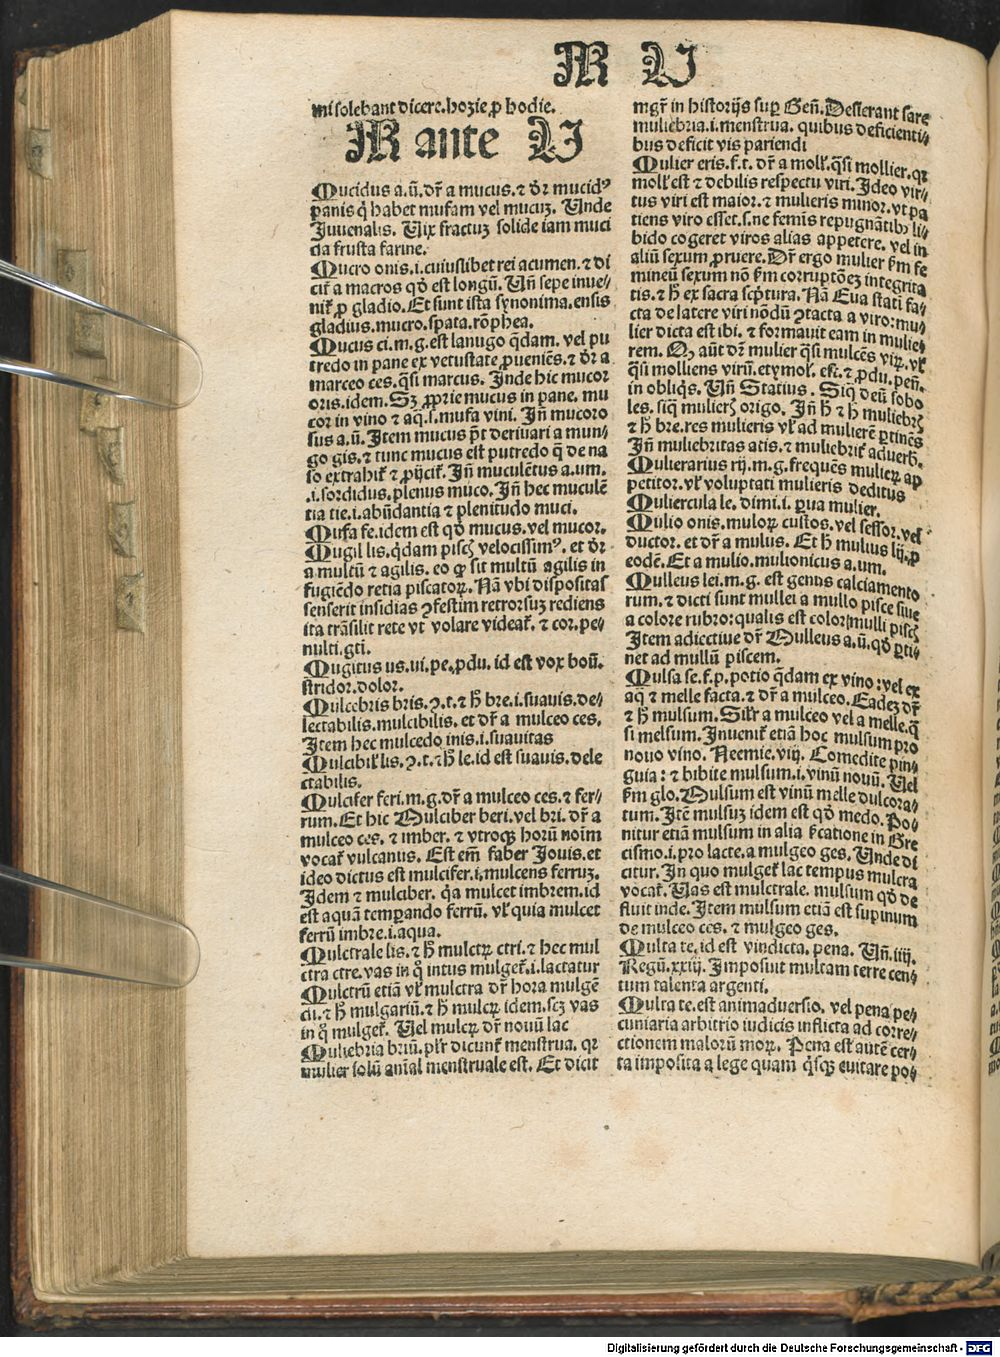 M U
mi solebant dicere. hozie ꝓ hodie.
M ante U
Mucidus a.ū. dr̄ a mucus. ⁊ dr̄ mucidꝰ
panis q̇ habet mufam vel mucuȝ. Unde
Juuenalis. Vix fractuȝ solide iam muci
da frusta farine.
Mucro onis. i. cuiuslibet rei acumen. ⁊ di
cit̄ a macros qd̓ est longū. Un̄ sepe inue⸗
nit̄ ꝓ gladio. Et sunt ista synonima. ensis
gladius. mucro. spata. rōphea.
Mucus ci. m. g. est lanugo q̄dam. vel pu
tredo in pane ex vetustate ꝓueniēs. ⁊ dr̄ a
marceo ces. q̄si marcus. Inde hic mucor
oris. idem. Sȝ ꝓprie mucus in pane. mu
cor in vino ⁊ aq̄. s. mufa vini. In̄ mucoro
sus a.ū. Item mucus p̄t deriuari a mun⸗
go gis. ⁊ tunc mucus est putredo q̄ de na
so extrahit̄ ⁊ ꝓijcit̄. In̄ muculētus a.um.
.i. sordidus. plenus muco. In̄ hec muculē
tia tie. i. abūdantia ⁊ plenitudo muci.
Mufa fe. idem est qd̓ mucus. vel mucor.
Mugil lis. q̄dam piscꝭ velocissimꝰ. et dr̄
a multū ⁊ agilis. eo ꝙ sit multū agilis in
fugiēdo retia piscatoꝝ. Nā vbi dispositas
senserit insidias ↄfestim retrorsuȝ rediens
ita trāsilit rete vt volare videat̄. ⁊ cor. pe⸗
nulti. gti.
Mugitus us. ui. pe. ꝓdu. id est vox boū.
stridor. dolor.
Mulcebris bris. ↄ. t. ⁊ h̄ bre. i. suauis. de⸗
lectabilis. mulcibilis. et dr̄ a mulceo ces.
Item hec mulcedo inis. i. suauitas
Mulcibil̓ lis. ↄ. t. ⁊ h̄ le. id est suauis. dele
ctabilis.
Mulcifer feri. m. g. dr̄ a mulceo ces. ⁊ fer⸗
rum. Et hic Mulciber beri. vel bri. dr̄ a
mulceo ces. ⁊ imber. ⁊ vtroqȝ horū noīm
vocat̄ vulcanus. Est em̄ faber Jouis. et
ideo dictus est mulcifer. i. mulcens ferruȝ.
Idem ⁊ mulciber. q̄a mulcet imbrem. id
est aquā temꝑando ferrū. vl̓ quia mulcet
ferrū imbre. i. aqua.
Mulctrale lis. ⁊ h̄ mulctꝝ ctri. ⁊ hec mul
ctra ctre. vas in q̊ intus mulget̄. i. lactatur
Mulctrū etiā vl̓ mulctra dr̄ hora mulgē
di. ⁊ h̄ mulgariū. ⁊ h̄ mulcꝝ idem. scȝ vas
in q̊ mulget̄. Vel mulcꝝ dr̄ nouū lac
Muliebria briū. pl̓r dicunt̄ menstrua. qꝛ
mulier solū aīal menstruale est. Et dicit
mgr̄ in historijs suꝑ Gen̄. Desierant sare
muliebria. i. menstrua. quibus deficienti⸗
bus deficit vis pariendi
Mulier eris. f. t. dr̄ a moll̓. q̄si mollier. qꝛ
moll̓ est ⁊ debilis respectu viri. Ideo vir⸗
tus viri est maior. ⁊ mulieris minor. vt pa
tiens viro esset. s. ne femīs repugnātibꝰ li⸗
bido cogeret viros alias appetere. vel in
aliū sexum ꝓruere. Dr̄ ergo mulier ẜm fe
mineū sexum nō ẜm corruptōeȝ integrita
tis. ⁊ h̄ ex sacra scp̄tura. Nā Eua stati fa⸗
cta de latere viri nōdū ↄtacta a viro: mu⸗
lier dicta est ibi. ⁊ formauit eam in mulie
rem. Qȝ aūt dr̄ mulier q̄si mulcēs viꝝ. vl̓
q̄si molliens virū. etymol̓. est. ⁊ ꝓdu. pen̄.
in obliq̄s. Un̄ Statius. Siq̄ deū sobo
les. siq̄ mulierꝭ origo. In̄ h̄ ⁊ h̄ muliebrꝭ
⁊ h̄ bre. res mulieris vl̓ ad mulierē ꝑtinēs
In̄ muliebritas atis. ⁊ muliebrit̓ aduerb.
Mulierarius rij. m. g. frequēs mulieꝝ ap
petitor. vl̓ voluptati mulieris deditus
Muliercula le. dimi. i. ꝑua mulier.
Mulio onis. muloꝝ custos. vel sessor. vel
ductor. et dr̄ a mulus. Et h̄ mulius lij. ꝓ
eodē. Et a mulio. mulionicus a.um.
Mulleus lei. m. g. est genus calciamento
rum. ⁊ dicti sunt mullei a mullo pisce siue
a colore rubro: qualis est color mulli piscꝭ
Item adiectiue dr̄ Mulleus a.ū. qd̓ ꝑti⸗
net ad mullū piscem.
Mulsa se. f. p. potio q̄dam ex vino: vel ex
aq̄ ⁊ melle facta. ⁊ dr̄ a mulceo. Eadeȝ dr̄
⁊ h̄ mulsum. Sil̓r a mulceo vel a melle. q̄
si melsum. Inuenit̄ etiā hoc mulsum pro
nouo vino. Neemie. viij. Comedite pin⸗
guia: ⁊ bibite mulsum. i. vinū nouū. Vel
ẜm glo. Mulsum est vinū melle dulcora⸗
tum. Itē mulsuȝ idem est qd̓ medo. Po⸗
nitur etiā mulsum in alia ẜcatione in Gre
cismo. i. pro lacte. a mulgeo ges. Unde di
citur. In quo mulget̄ lac tempus mulcra
vocat̄. Vas est mulctrale. mulsum qd̓ de
fluit inde. Item mulsum etiā est supinum
de mulceo ces. ⁊ mulgeo ges.
Multa te. id est vindicta. pena. Un̄. iiij.
Regū. xxiij. Imposuit multam terre cen⸗
tum talenta argenti.
Multa te. est animaduersio. vel pena pe⸗
cuniaria arbitrio iudicis inflicta ad corre⸗
ctionem malorū moꝝ. Pena est autē cer⸗
ta imposita a lege quam q̇sqȝ euitare po⸗
Digitalisierung gefördert durch die Deutsche Forschungsgemeinschaft - DFG